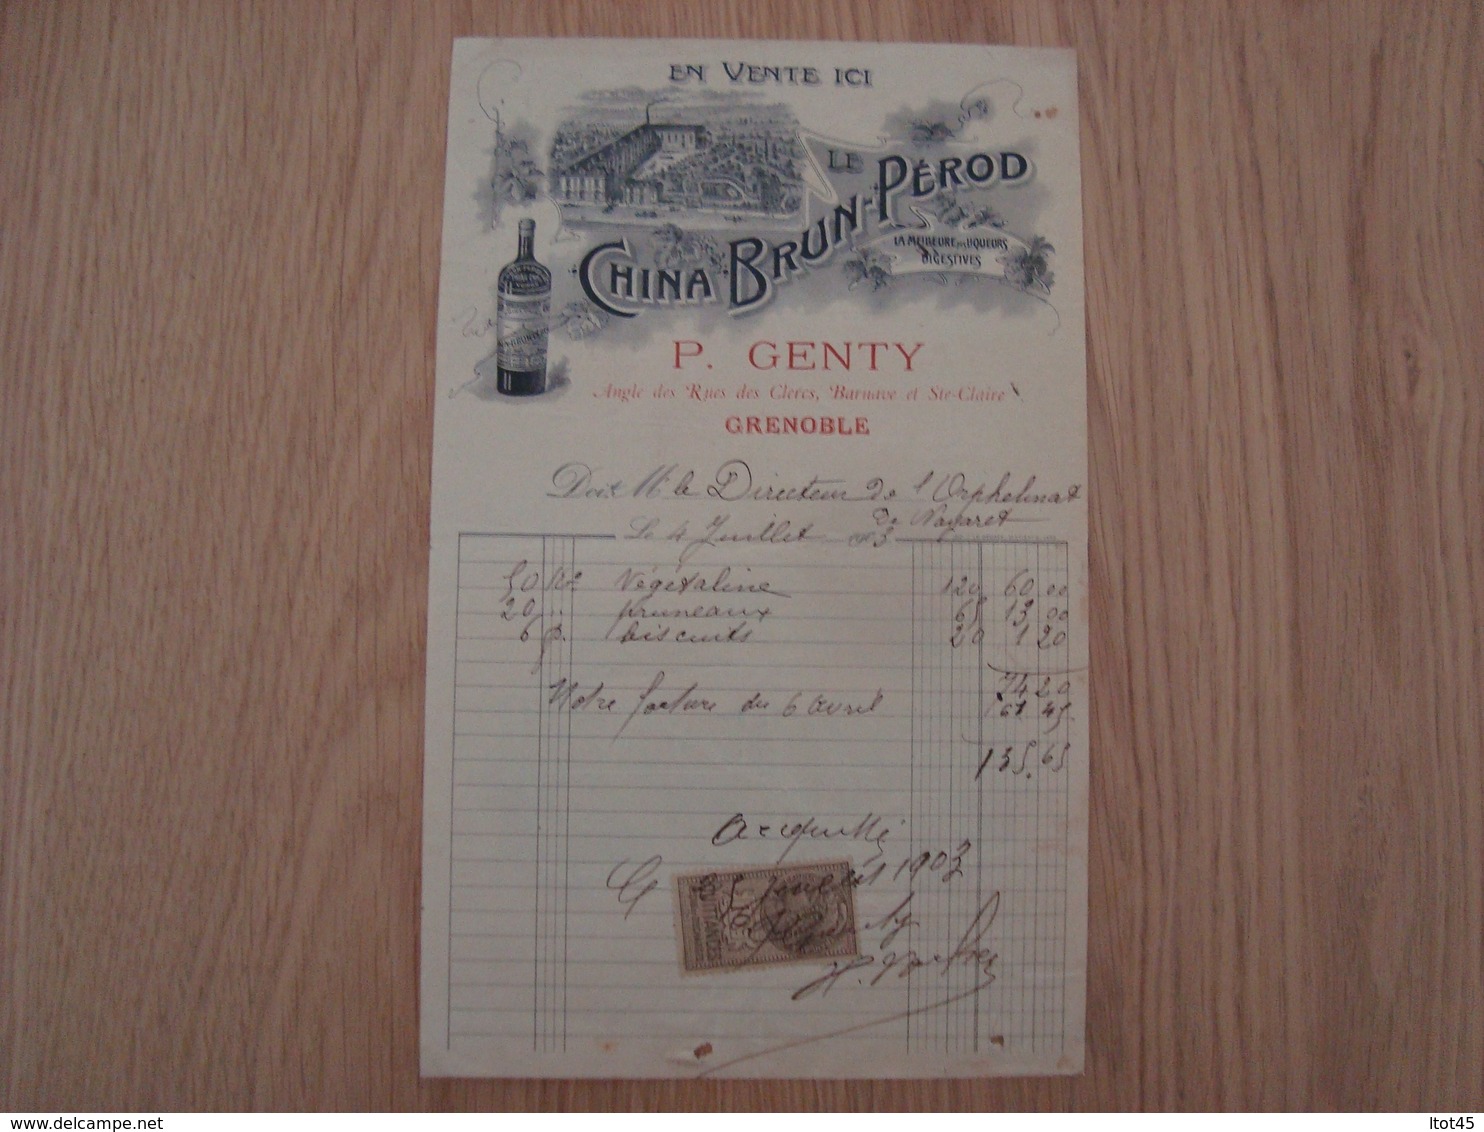 EN VENTE ICI
LE
CHINA BRUN-PÉROD
LA MEILLEURE DES LIQUEURS
DIGESTIVES
P. GENTY
Angle des Rues des Clercs, Barnave et Ste-Claire
GRENOBLE
Doit Mr le Directeur de l'Orphelinat
de Nazaret
Le 4 Juillet 03
50 K° Végétaline 120 60 00
20 " pruneaux 65 13 00
6 p. biscuits 20 1 20
74 20
Notre facture du 6 avril 61 45
135.65
Acquitté
Le 25 juillet 1903
QUITTANCES
Itot45